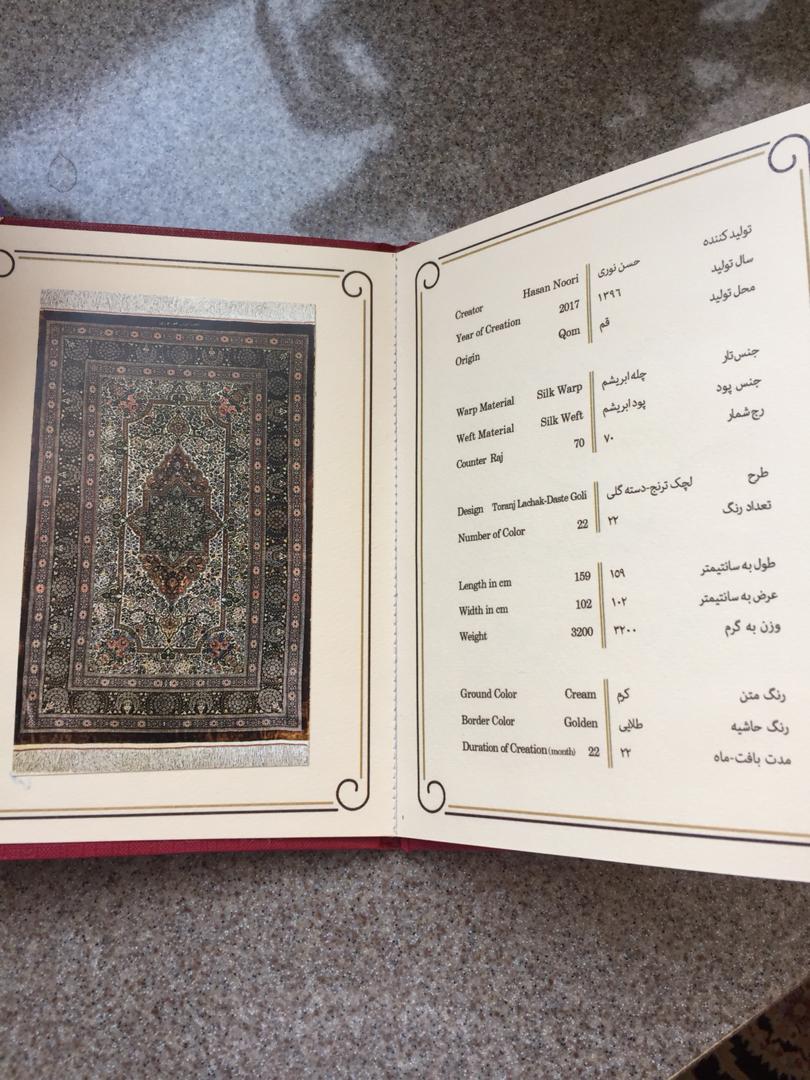 Creator Hasan Noori حسن نوری تولید کننده
Year of Creation 2017 ۱۳۹۶ سال تولید
Origin Qom قم محل تولید
Warp Material Silk Warp چله ابریشم جنس تار
Weft Material Silk Weft پود ابریشم جنس پود
Counter Raj 70 ۷۰ رج شمار
Design Toranj Lachak-Daste Goli لچک ترنج-دسته گلی طرح
Number of Color 22 ۲۲ تعداد رنگ
Length in cm 159 ۱۵۹ طول به سانتیمتر
Width in cm 102 ۱۰۲ عرض به سانتیمتر
Weight 3200 ۳۲۰۰ وزن به گرم
Ground Color Cream کرم رنگ متن
Border Color Golden طلایی رنگ حاشیه
Duration of Creation (month) 22 ۲۲ مدت بافت-ماه